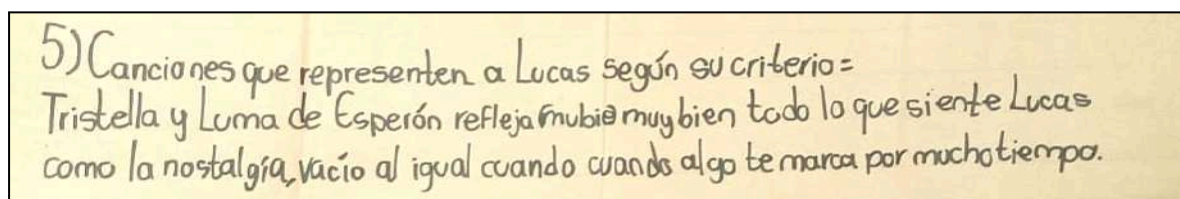 5) Canciones que representen a Lucas según su criterio=
Tristella y Luma de Esperón refleja muy bien todo lo que siente Lucas
como la nostalgía, vacío al igual cuando cuando algo te marca por mucho tiempo.